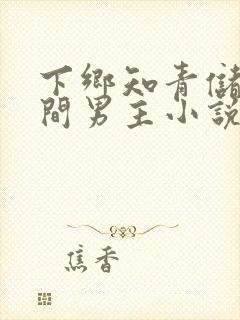 下鄉知青儲
間男主小說
焦香